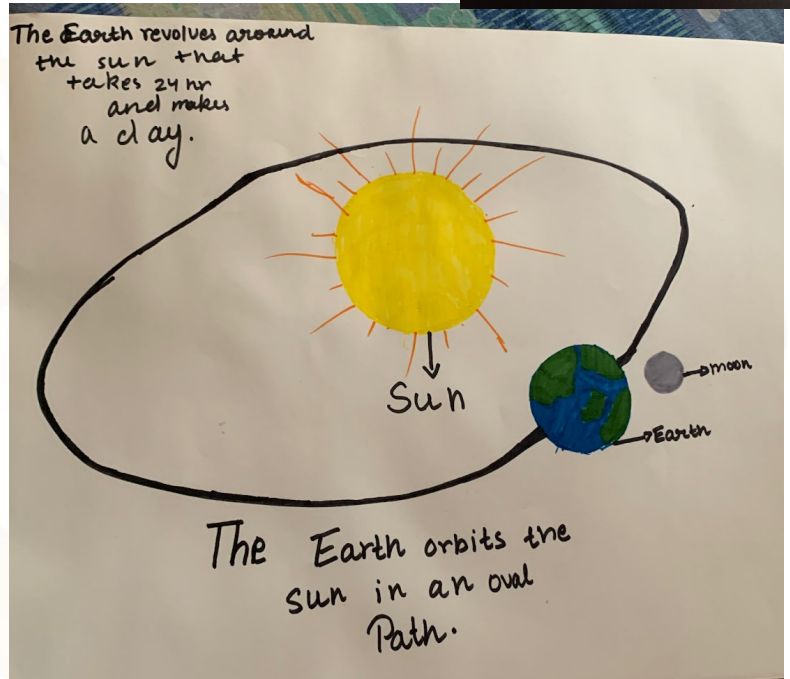 The Earth revolves around
the sun that
takes 24 hr
and makes
a day.
Sun
moon
Earth
The Earth orbits the
sun in an oval
Path.